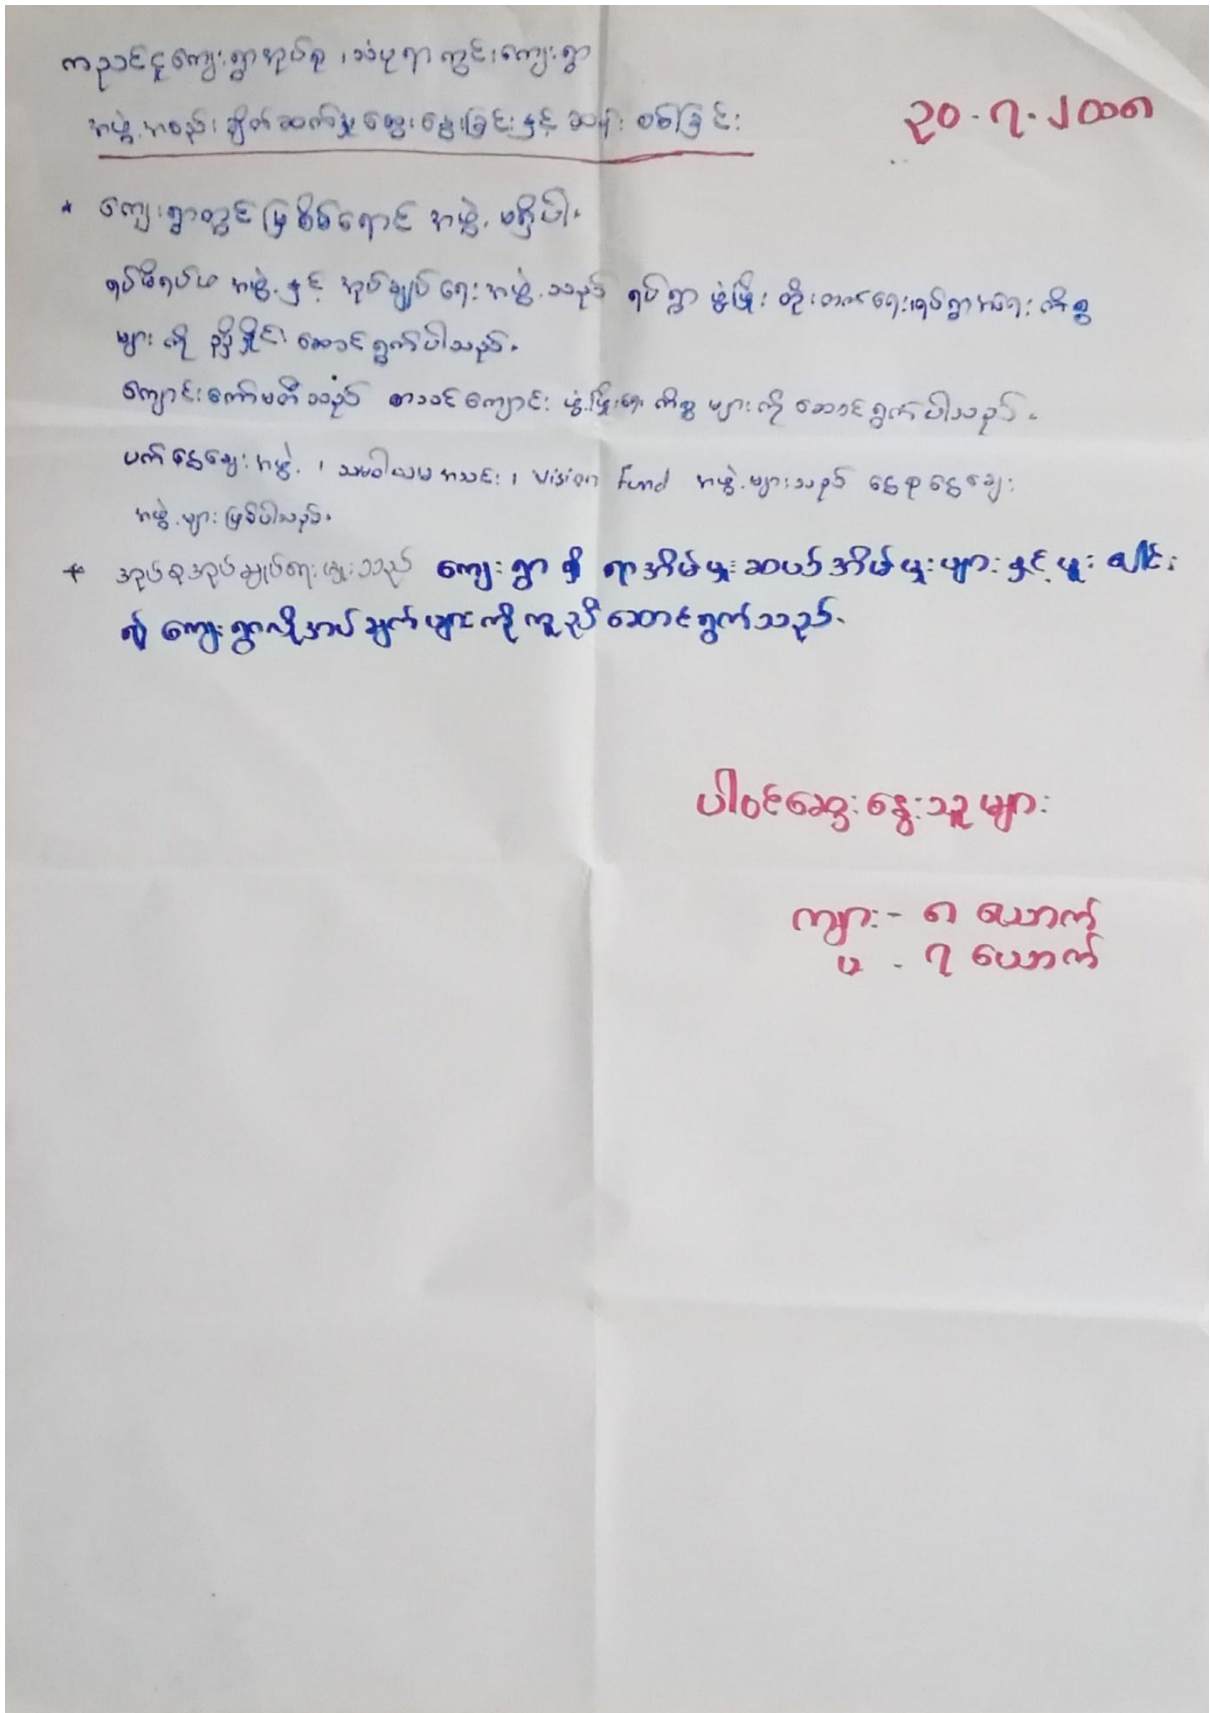 ကညင်ငူကျေးရွာအုပ်စု ၊ သံပုရာကွင်းကျေးရွာ
အဖွဲ့အစည်း ချိတ်ဆက်မှု ဆွေးနွေးခြင်းနှင့် ဆန်းစစ်ခြင်း
၃၀.၇.၂၀၁၈
* ကျေးရွာတွင် မြစိမ်းရောင် အဖွဲ့ မရှိပါ။
ရပ်မိရပ်ဖ အဖွဲ့နှင့် အုပ်ချုပ်ရေးအဖွဲ့သည် ရပ်ရွာ ဖွံ့ဖြိုး တိုးတက်ရေး၊ ရပ်ရွာအရေး ကိစ္စ
များကို ညှိနှိုင်း ဆောင်ရွက်ပါသည်။
ကျောင်းကော်မတီသည် စာသင်ကျောင်း ဖွံ့ဖြိုးရေး ကိစ္စများကို ဆောင်ရွက်ပါသည်။
ပက်ငွေချေးအဖွဲ့ ၊ သမဝါယမအသင်း ၊ Vision Fund အဖွဲ့များသည် ငွေစုငွေချေး
အဖွဲ့များဖြစ်ပါသည်။
* အုပ်စုအုပ်ချုပ်ရေးမှူးသည် ကျေးရွာရှိ ရာအိမ်မှူး ဆယ်အိမ်မှူးများနှင့် ပူးပေါင်း
၍ ကျေးရွာလိုအပ်ချက်များကို ကူညီဆောင်ရွက်သည်။
ပါဝင်ဆွေးနွေးသူများ
ကျား - ၈ ယောက်
မ - ၇ ယောက်